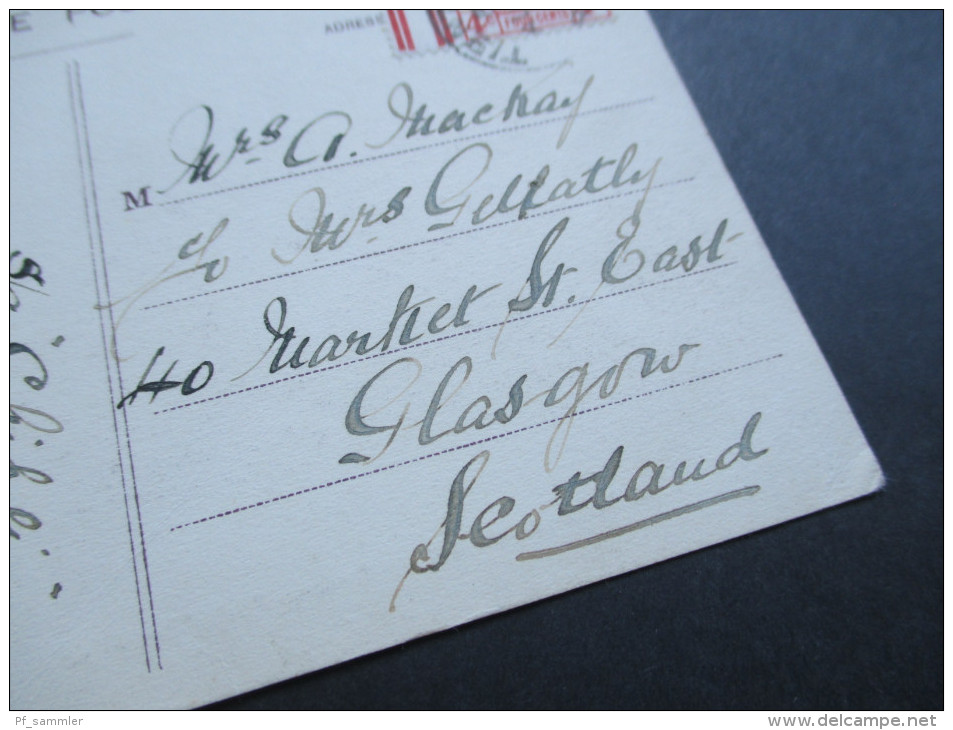 ADRESSE
M Mrs A. Mackay
c/o Mrs Gellatly
40 Market St. East
Glasgow
Scotland
Pf_sammler
www.delcampe.net